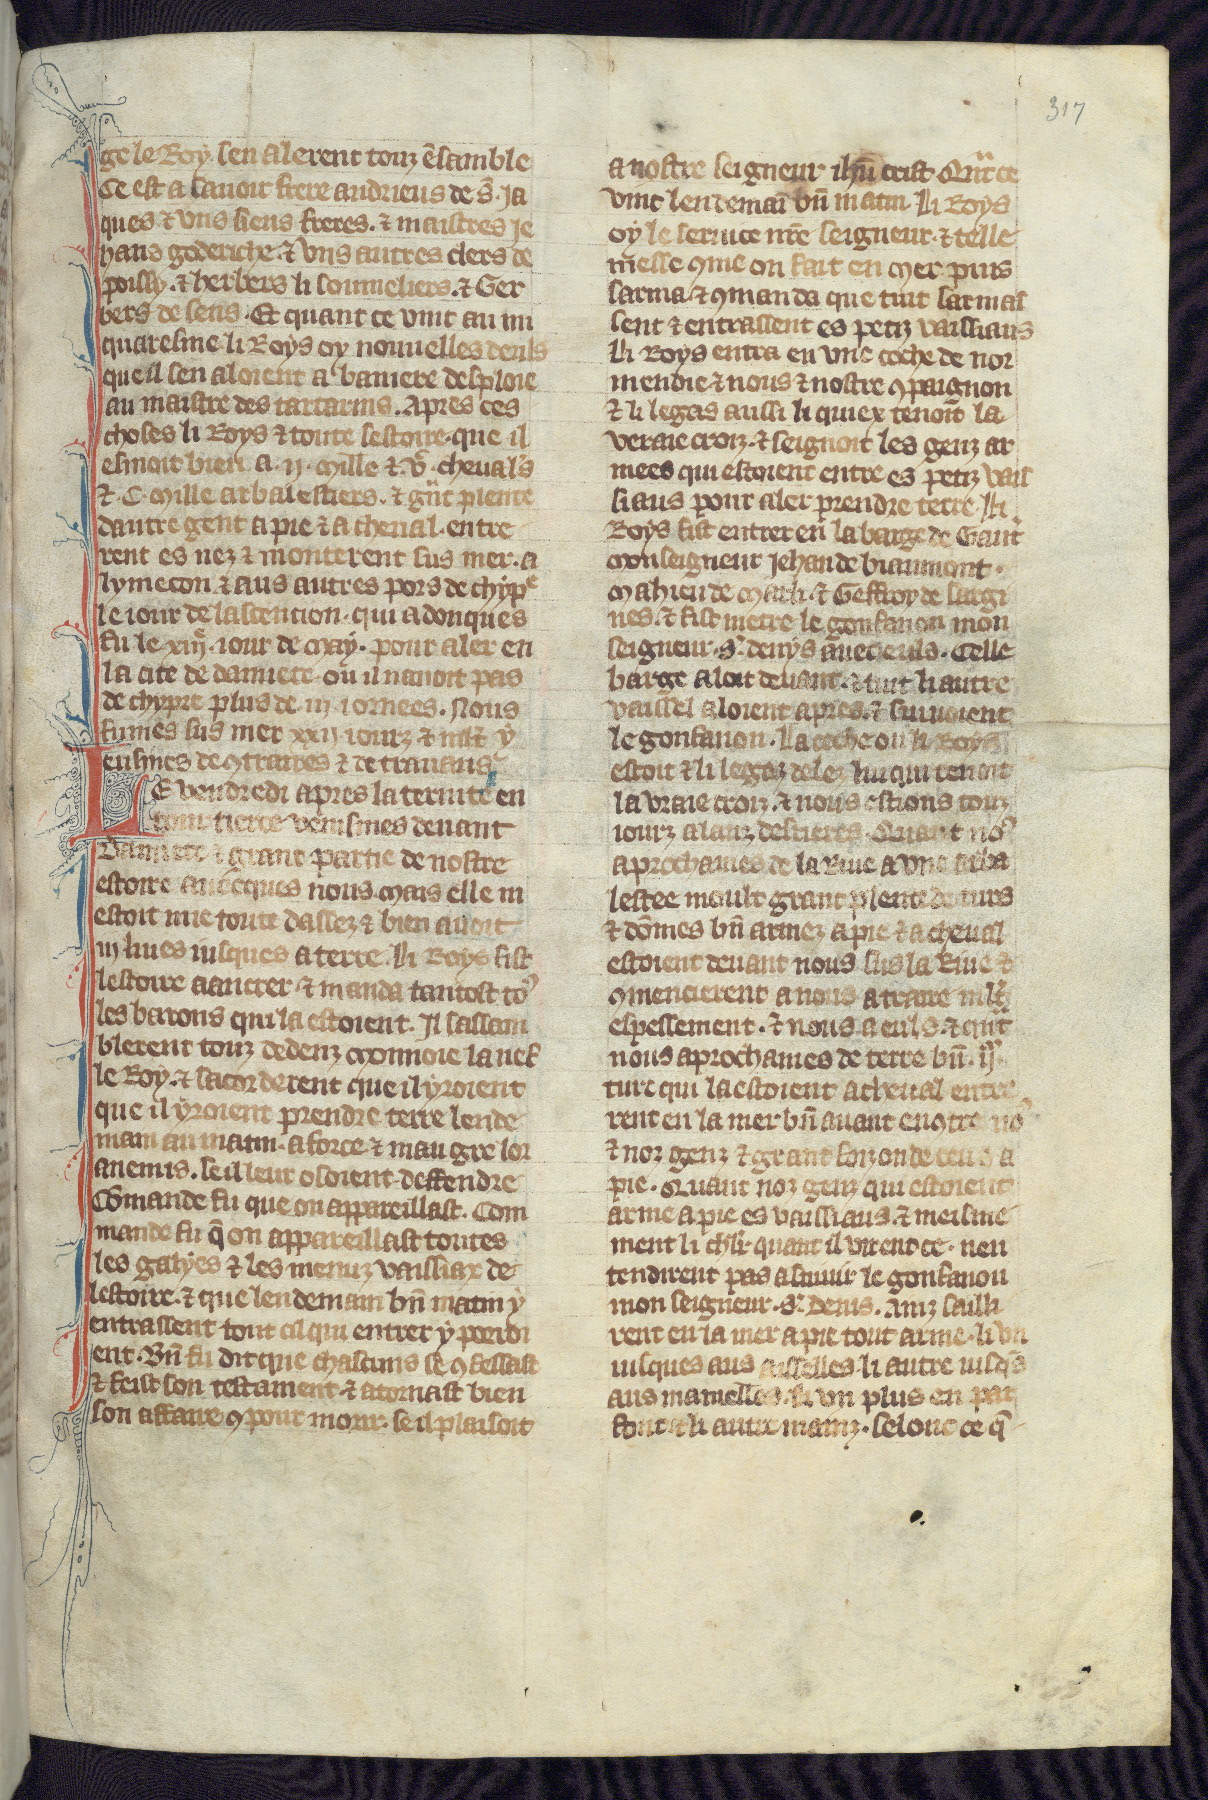 317
ge le Roy. sen alerent touz ēsamble
Ce est a sauoir frere andrieus de .s̄. Ja
ques ⁊ vns siens freres. ⁊ maistres Je
hans goderiche ⁊ vns autres clers de
poissy. ⁊ herbers li sommeliers. ⁊ Ger
bers de sens. Et quant ce vint au mi
quaresme li Roys oy nouuelles deuls
que il sen aloient a baniere desploie
au maistre des tartarins. Apres ces
choses li Roys ⁊ toute lestoire que il
esmoit bien a .ij. mille ⁊ v.ͨ cheual's
⁊ .C. mille arbalestiers. ⁊ gr̄t plente
dautre gent a pie ⁊ a cheual. entre
rent es nez ⁊ monterent sus mer. a
lymecon ⁊ aus autres pors de chypͤ
le iour de lascention. qui adonques
fu le xiijͤ. iour de may. pour aler en
la cite de damiete. ou il nauoit pas
de chypre plus de .iij. iornees. Nous
fumes sus mer xxij iourz ⁊ ml̄t y
eusmes de 9traires ⁊ de trauaus
LE vendredi apres la ternite en
tour tierce venismes deuant
Damiete ⁊ grant partie de nostre
estoire auecques nous. mais elle ni
estoit mie toute dassez ⁊ bien auoit
iij liues iusques a terre. Li Roys fist
lestoire aancrer ⁊ manda tantost toꝰ
les barons qui la estoient. Il sassam
blerent touz dedenz monnoie la nef
le Roy. ⁊ sacorderent que il yroient
que il yroient prendre terre lende
main au matin. a force ⁊ maugre lor
anemis. se il leur osoient deffendre
Cōmande fu que on appareillast. Com
mande fu q̄ on appareillast toutes
les galyes ⁊ les menuz vaissiax de
lestoire. ⁊ que lendemain bn̄ matin y
entrassent tout cil qui entrer y porroi
ent. Bn̄ fu dit que chascuns se 9fessast
⁊ feist son testament ⁊ atornast bien
son affaire 9 pour morir. se il plaisoit
a nostre seigneur ihū crist. Qūt ce
vint lendemaī bn̄ matin. Li Roys
oy le seruice nr̄e seigneur. ⁊ telle
messe 9me on fait en mer. puis
sarma. ⁊ 9manda que tuit sarmas
sent ⁊ entrassent es petiz vaissiaus
Li Roys entra en vne coche de nor
mendie ⁊ nous ⁊ nostre 9paignon
⁊ li legas aussi li quiex tenoit la
veraie croiz. ⁊ seignoit les genz ar
mees qui estoient entre es petiz vais
siaus pour aler prendre terre. Li
Roys fist entrer en la barge de Gaut̄
monseigneur Jehan de biaumont.
mahieu de marli. ⁊ Geffroy de sargi
nes. ⁊ fist metre le gonfanon mon
seigneur .S. denys auec euls. Celle
barge aloit deuant. ⁊ tuit li autre
vaissel aloient apres. ⁊ suiuoient
le gonfanon. La coche ou li Roys
estoit ⁊ li legaz delez lui qui tenoit
la vraie croiz. ⁊ nous estions touz
iourz alanz derrieres. Quant noꝰ
aprochames de la Riue a vne arba
lestee moult grant plente de turs
⁊ dōmes bn̄ armez a pie ⁊ a cheual
estoient deuant nous sus la Riue ⁊
9mencierent a nous a traire ml̄t
espessement. ⁊ nous a euls. ⁊ qn̄t
nous aprochames de terre bn̄ .ij.ͫ
turc qui la estoient a cheual entre
rent en la mer bn̄ auant en9tre noꝰ
⁊ noz genz ⁊ grant foison de ceus a
pie. Quant noz genz qui estoient
arme a pie es vaissiaus. ⁊ meisme
ment li chl̄r quant il virent ce. nen
tendirent pas a suiuir le gonfanon
mon seigneur .S. Denis. Ainz sailli
rent en la mer a pie tout arme. li vn
iusques aus aisselles li autre iusqs̄
aus mamelles. li vn plus en par
font ⁊ li autre mainz. selonc ce q̄